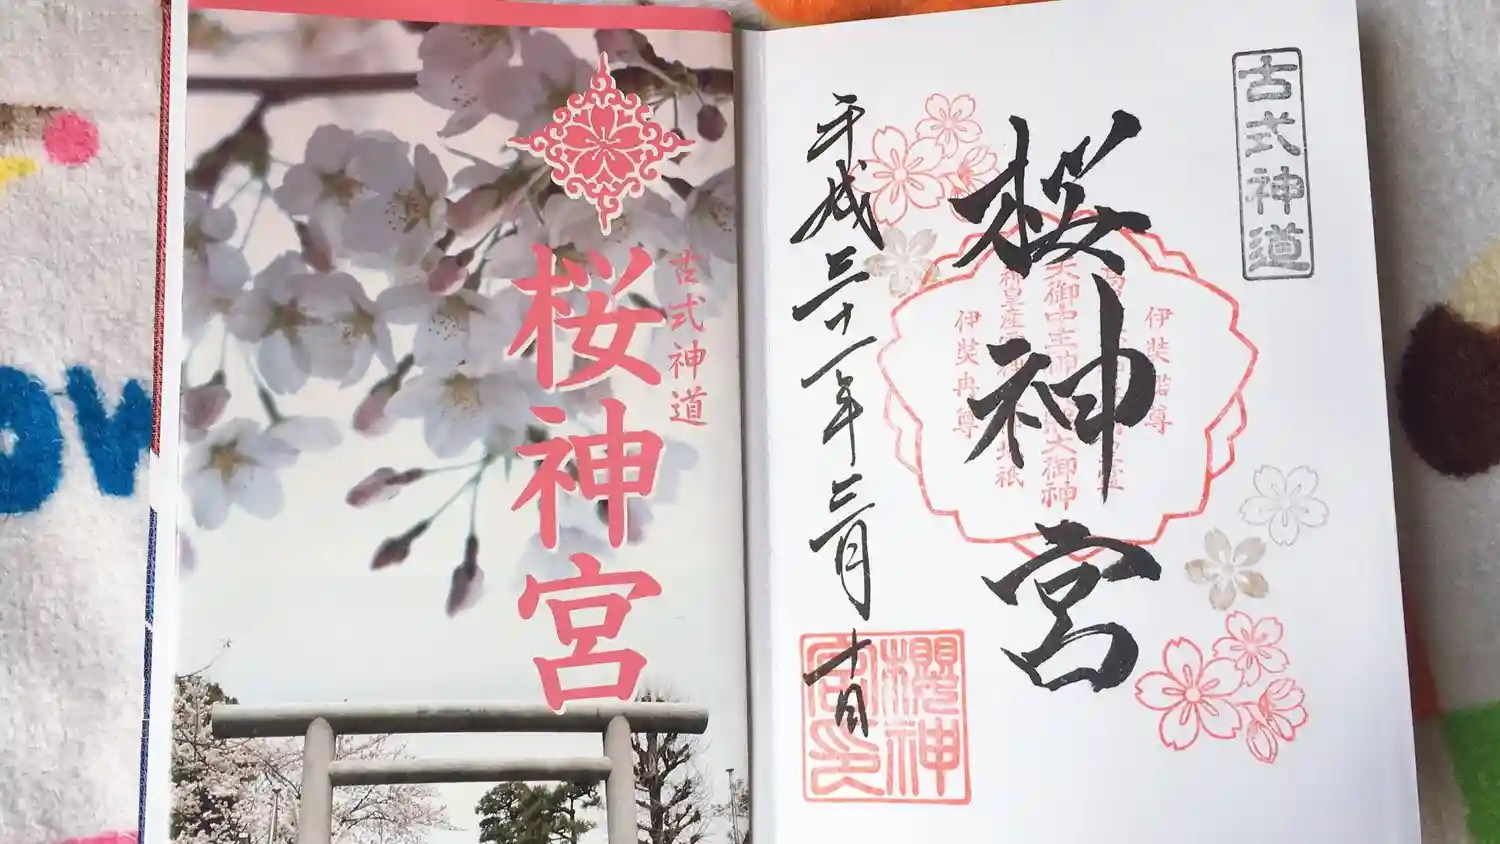 古式神道
桜神宮
古式神道
桜神宮
伊弉諾尊
天御中主神
大御神
伊弉冉尊
平成三十一年三月十日
櫻神
宮印
OW